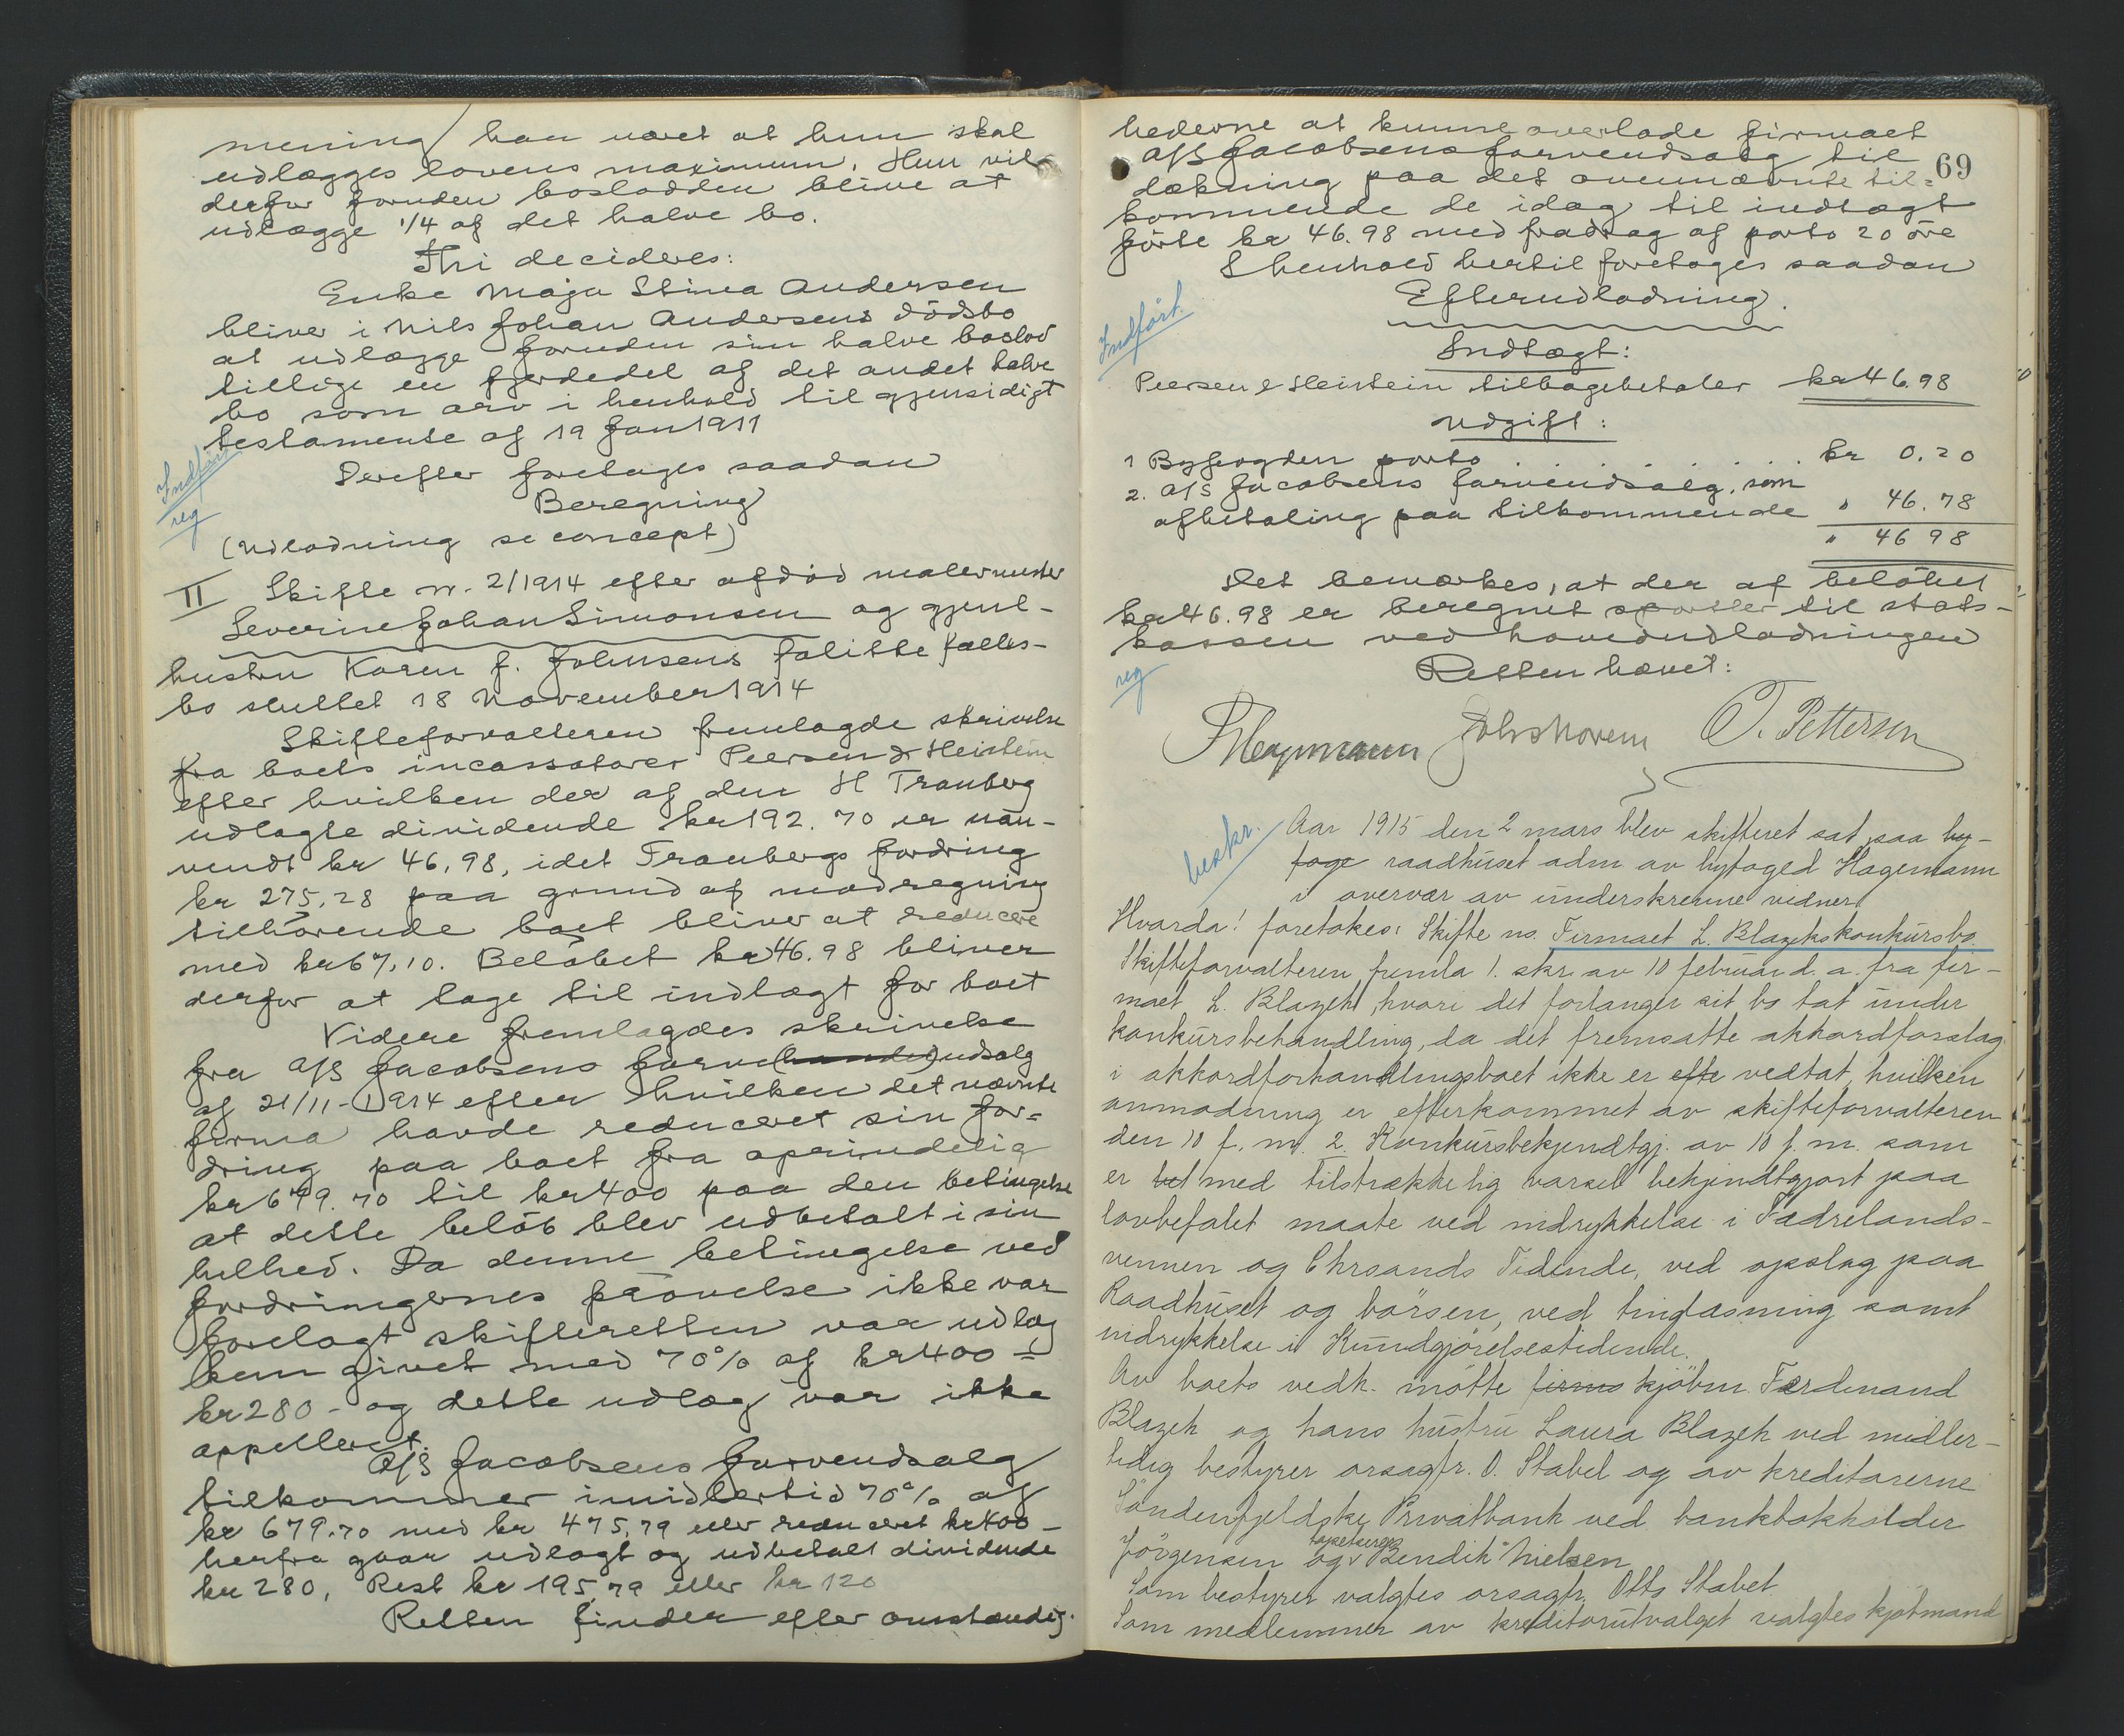 mening har været at hun skal
udlægges lovens maximum. Hun vil
derfor foruden boslodden blive at
udlægge 1/4 af det halve bo.
Thi decideres:
Enke Maja Stina Andersen
bliver i Nils Johan Andersens dödsbo
at udlægge foruden sin halve boslod
tillige en fjerdedel af det andet halve
bo som arv i henhold til gjensidigt
testamente af 19 Jan 1911
Derefter foretages saadan
Indført
reg
Beregning
(Udlodning se concept)
II Skifte nr. 2/1914 efter afdød malermester
Severine Johan Simonsen og gjenl-
hustru Karen f. Johnsens falitte fælles-
bo sluttet 18 November 1914
Skifteforvalteren fremlagde skrivelse
fra boets incassatorer Peersen & Heistein
efter hvilken der af den H Tranberg
udlagte dividende kr 192.70 er uan-
vendt kr 46,98, idet Tranbergs fordring
kr 275,28 paa grund af modregning
tilhörende boet bliver at reducere
med kr 67,10. Belöbet kr 46.98 bliver
derfor at tage til indtægt for boet
Videre fremlagdes skrivelse
fra A/S Jacobsens farve(handel)udsalg
af 21/11-1914 efter hvilken det nævnte
firma havde reduceret sin for-
dring paa boet fra oprindelig
kr 679.70 til kr 400 paa den betingelse
at dette belöb blev udbetalt i sin
helhed. Da denne betingelse ved
fordringernes prövelse ikke var
forelagt skifteretten var udlæg
kun givet med 70% af kr 400 =
kr 280 - og dette udlæg var ikke
appelleret.
A/S Jacobsens farveudsalg
tilkommer imidlertid 70% af
kr 679.70 med kr 475,79 eller reduceret kr 400 -
herfra gaar udlagt og udbetalt dividende
kr 280, Rest kr 195,79 eller kr 120
Retten finder efter omstændig-
hederne at kunne overlade firmaet
A/S Jacobsens farveudsalg til
69
dækning paa det ovennævnte til-
kommende de idag til indtægt
förte kr 46.98 med fradrag af porto 20 öre
I henhold hertil foretages saadan
Efterudlodning.
Indført.
Indtægt:
Peersen & Heistein tilbagebetaler kr 46.98
Udgift:
1 Byfogden porto . . . . . . kr 0.20
2. A/S Jacobsens farveudsalg, som
afbetaling paa tilkommende " 46.78
" 46 98
Det bemærkes, at der af belöbet
kr 46.98 er beregnet sportler til stats-
kassen ved hovedudlodningen
Retten hævet:
reg
Hagemann O. Pettersen
beskr.
Aar 1915 den 2 mars blev skifteret sat paa by-
foge raadhuset adm av byfoged Hagemann
i overvær av underskrevne vidner
Hvorda! foretokes: Skifte no. Firmaet L. Blazeks konkursbo
Skifteforvalteren fremla 1. skr. av 10 februar d. a. fra fir-
maet L. Blazek, hvori det forlanger sit bo tat under
konkursbehandling, da det fremsatte akkordforslag
i akkordforhandlingsboet ikke er efte vedtat, hvilken
anmodning er efterkommet av skifteforvalteren
den 10 f. m. 2. Konkursbekjendtgj. av 10 f. m. som
er bet med tilstrækkelig varsel bekjendtgjort paa
lovbefalet maate ved indrykkelse i Fædrelands-
vennen og Chrsands Tidende, ved opslag paa
Raadhuset og börsen, ved tinglæsning samt
indrykkelse i Kundgjörelsestidende.
Av boets vedk. mötte firma kjöbm. Ferdinand
Blazek og hans hustru Laura Blazek ved midler-
tidig bestyrer orsagfr. O. Stabel og av kreditorerne
Söndenfjeldske Privatbank ved bankbokholder
Jörgensen og Bendik Nielsen
Som bestyrer valgtes orsagfr. Otto Stabel
Som medlemmer av kreditorutvalget valgtes kjöbmand